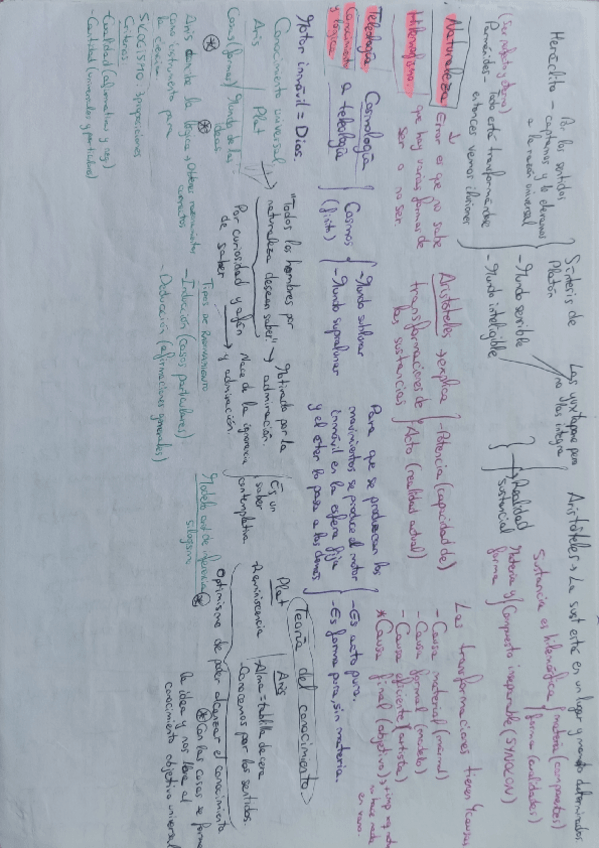 Por los sentidos
Heráclito - captamos y lo demos
a la razón universal
(Ser relato y dora)
Parménides - Todo está transformándose
entonces vemos ilusiones
Síntesis de
Platón
- Mundo sensible
- Mundo inteligible
Las yuxtapone pero
no llas integra
Aristóteles → La sust está en un lugar y mundo determinados
Realidad
sustancial
Sustancia es hilemórfica
materia (componentes)
forma (cualidades)
Materia y
forma
Compuesto inseparable (SYNOLON)
Naturaleza
Hilemorfismo.
Error es que no sabe
que hay varias formas de
ser o no ser
Aristóteles → explica
transformaciones de
las sustancias
- Potencia (capacidad de)
Acto (realidad actual)
Las transformaciones tienen 4 causas
- Causa material (mármol)
- Causa formal (modelo)
- Causa eficiente (artista)
* Causa final (objetivo)
no hace nada
en vano.
Teleología
Conocimiento
y lógica
Cosmología
a teleología
Cosmos
(finito)
- Mundo sublunar
- Mundo supralunar
Para que se produzcan los
movimientos se produce el motor
inmóvil en la esfera fija
y el éter lo pasa a los demás
- Es acto puro.
- Es forma pura, sin materia.
Motor inmóvil = Dios.
Teoría del conocimiento
Conocimiento universal
Aris / Plat
Cons (formas) / Mundo de las
ideas
"Todos los hombres por
naturaleza desean saber"
Por curiosidad y afán
de saber
→ Motivado por la
admiración.
Nace de la ignorancia
y admiración.
Es un
saber
contemplativa
Plat
Reminiscencia
Aris
Alma = tablilla de cera
Conocemos por los sentidos.
Optimismo de poder alcanzar el conocimiento
* Con las cosas se forma
la idea y nos lleva al
conocimiento objetivo universal
Aris
la lógica → Obtener razonamientos
como instrumento para
la ciencia
correctos
Tipos de Razonamiento
- Inducción (casos particulares)
- Deducción (afirmaciones generales)
Modelo
de inferencia
silogismo
SILOGISMO: 3 proposiciones
Criterios:
- Cualidad (afirmativas y neg)
- Cantidad (universales y particulares)